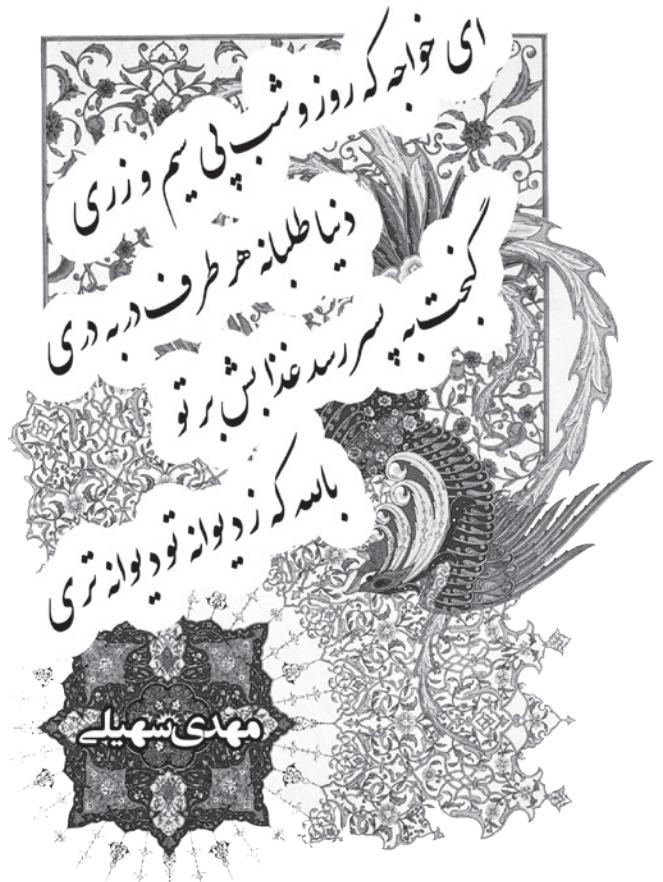 ای خواجه که روز و شب پی سیم و زری
دنیا طلبانه هر طرف دربدری
گنجت به پسر رسد عذابش بر تو
بالله که ز دیوانه تو دیوانه تری
مهدی سهیلی